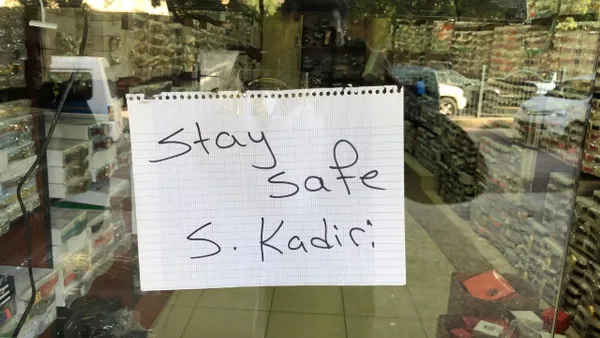 Stay
safe
S. Kadiri